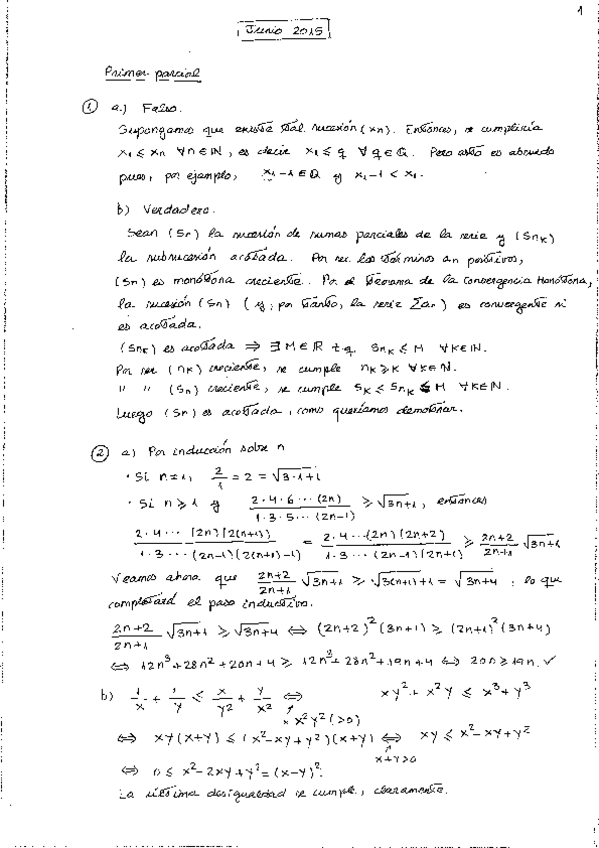 1
Junio 2015
Primer parcial
① a.) Falso.
Supongamos que existe tal sucesión (xn). Entonces, se cumpliría
x₁ ≤ xn ∀n∈ℕ, es decir x₁ ≤ q ∀q∈ℚ. Pero esto es absurdo
pues, por ejemplo, x₁-1∈ℚ y x₁-1 < x₁.
b) Verdadero.
Sean (Sn) la sucesión de sumas parciales de la serie y (Snₖ)
la subsucesión acotada. Por ser los términos an positivos,
(Sn) es monótona creciente. Por el Teorema de la Convergencia Monótona,
la sucesión (Sn) (y, por tanto, la serie Σan) es convergente si
es acotada.
(Snₖ) es acotada ⇒ ∃M∈ℝ t.q. Snₖ ≤ M ∀k∈ℕ.
Por ser (nₖ) creciente, se cumple nₖ ≥ k ∀k∈ℕ.
" " (Sn) creciente, se cumple Sₖ ≤ Snₖ ≤ M ∀k∈ℕ.
Luego (Sn) es acotada, como queríamos demostrar.
② a) Por inducción sobre n
· Si n=1, 2/1 = 2 = √(3·1+1)
· Si n≥1 y (2·4·6···(2n))/(1·3·5···(2n-1)) ≥ √(3n+1), entonces
(2·4···(2n)(2(n+1)))/(1·3···(2n-1)(2(n+1)-1)) = (2·4···(2n)(2n+2))/(1·3···(2n-1)(2n+1)) ≥ (2n+2)/(2n+1) √(3n+1)
Veamos ahora que (2n+2)/(2n+1) √(3n+1) ≥ √(3(n+1)+1) = √(3n+4), lo que
completará el paso inductivo.
(2n+2)/(2n+1) √(3n+1) ≥ √(3n+4) ⇔ (2n+2)²(3n+1) ≥ (2n+1)²(3n+4)
⇔ 12n³+28n²+20n+4 ≥ 12n³+28n²+19n+4 ⇔ 20n ≥ 19n. ✓
b) 1/x + 1/y ≤ x/y² + y/x² ⇔ xy²+x²y ≤ x³+y³
× x²y² (>0)
⇔ xy(x+y) ≤ (x²-xy+y²)(x+y) ⇔ xy ≤ x²-xy+y²
x+y>0
⇔ 0 ≤ x²-2xy+y² = (x-y)².
La última desigualdad se cumple, claramente.